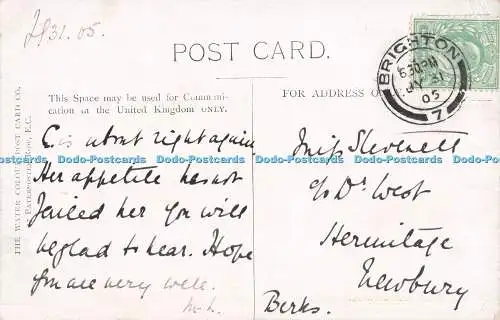 31.05.
POST CARD.
BRIGHTON
6 30 PM
31
05
7
This Space may be used for Communi-
cation in the United Kingdom ONLY.
FOR ADDRESS
THE WATER COLOUR POST CARD CO.
PATERNOSTER ROW, E.C.
C. is about right again
Her appetite has not
failed her You will
be glad to hear. Hope
you are very well.
Dodo-Postcards Dodo-Postcards Dodo-Postcards Dodo-Postcards Dodo-Postcards Dodo-Postcards
Miss
c/o Dr West
Hermitage
Newbury
Berks.